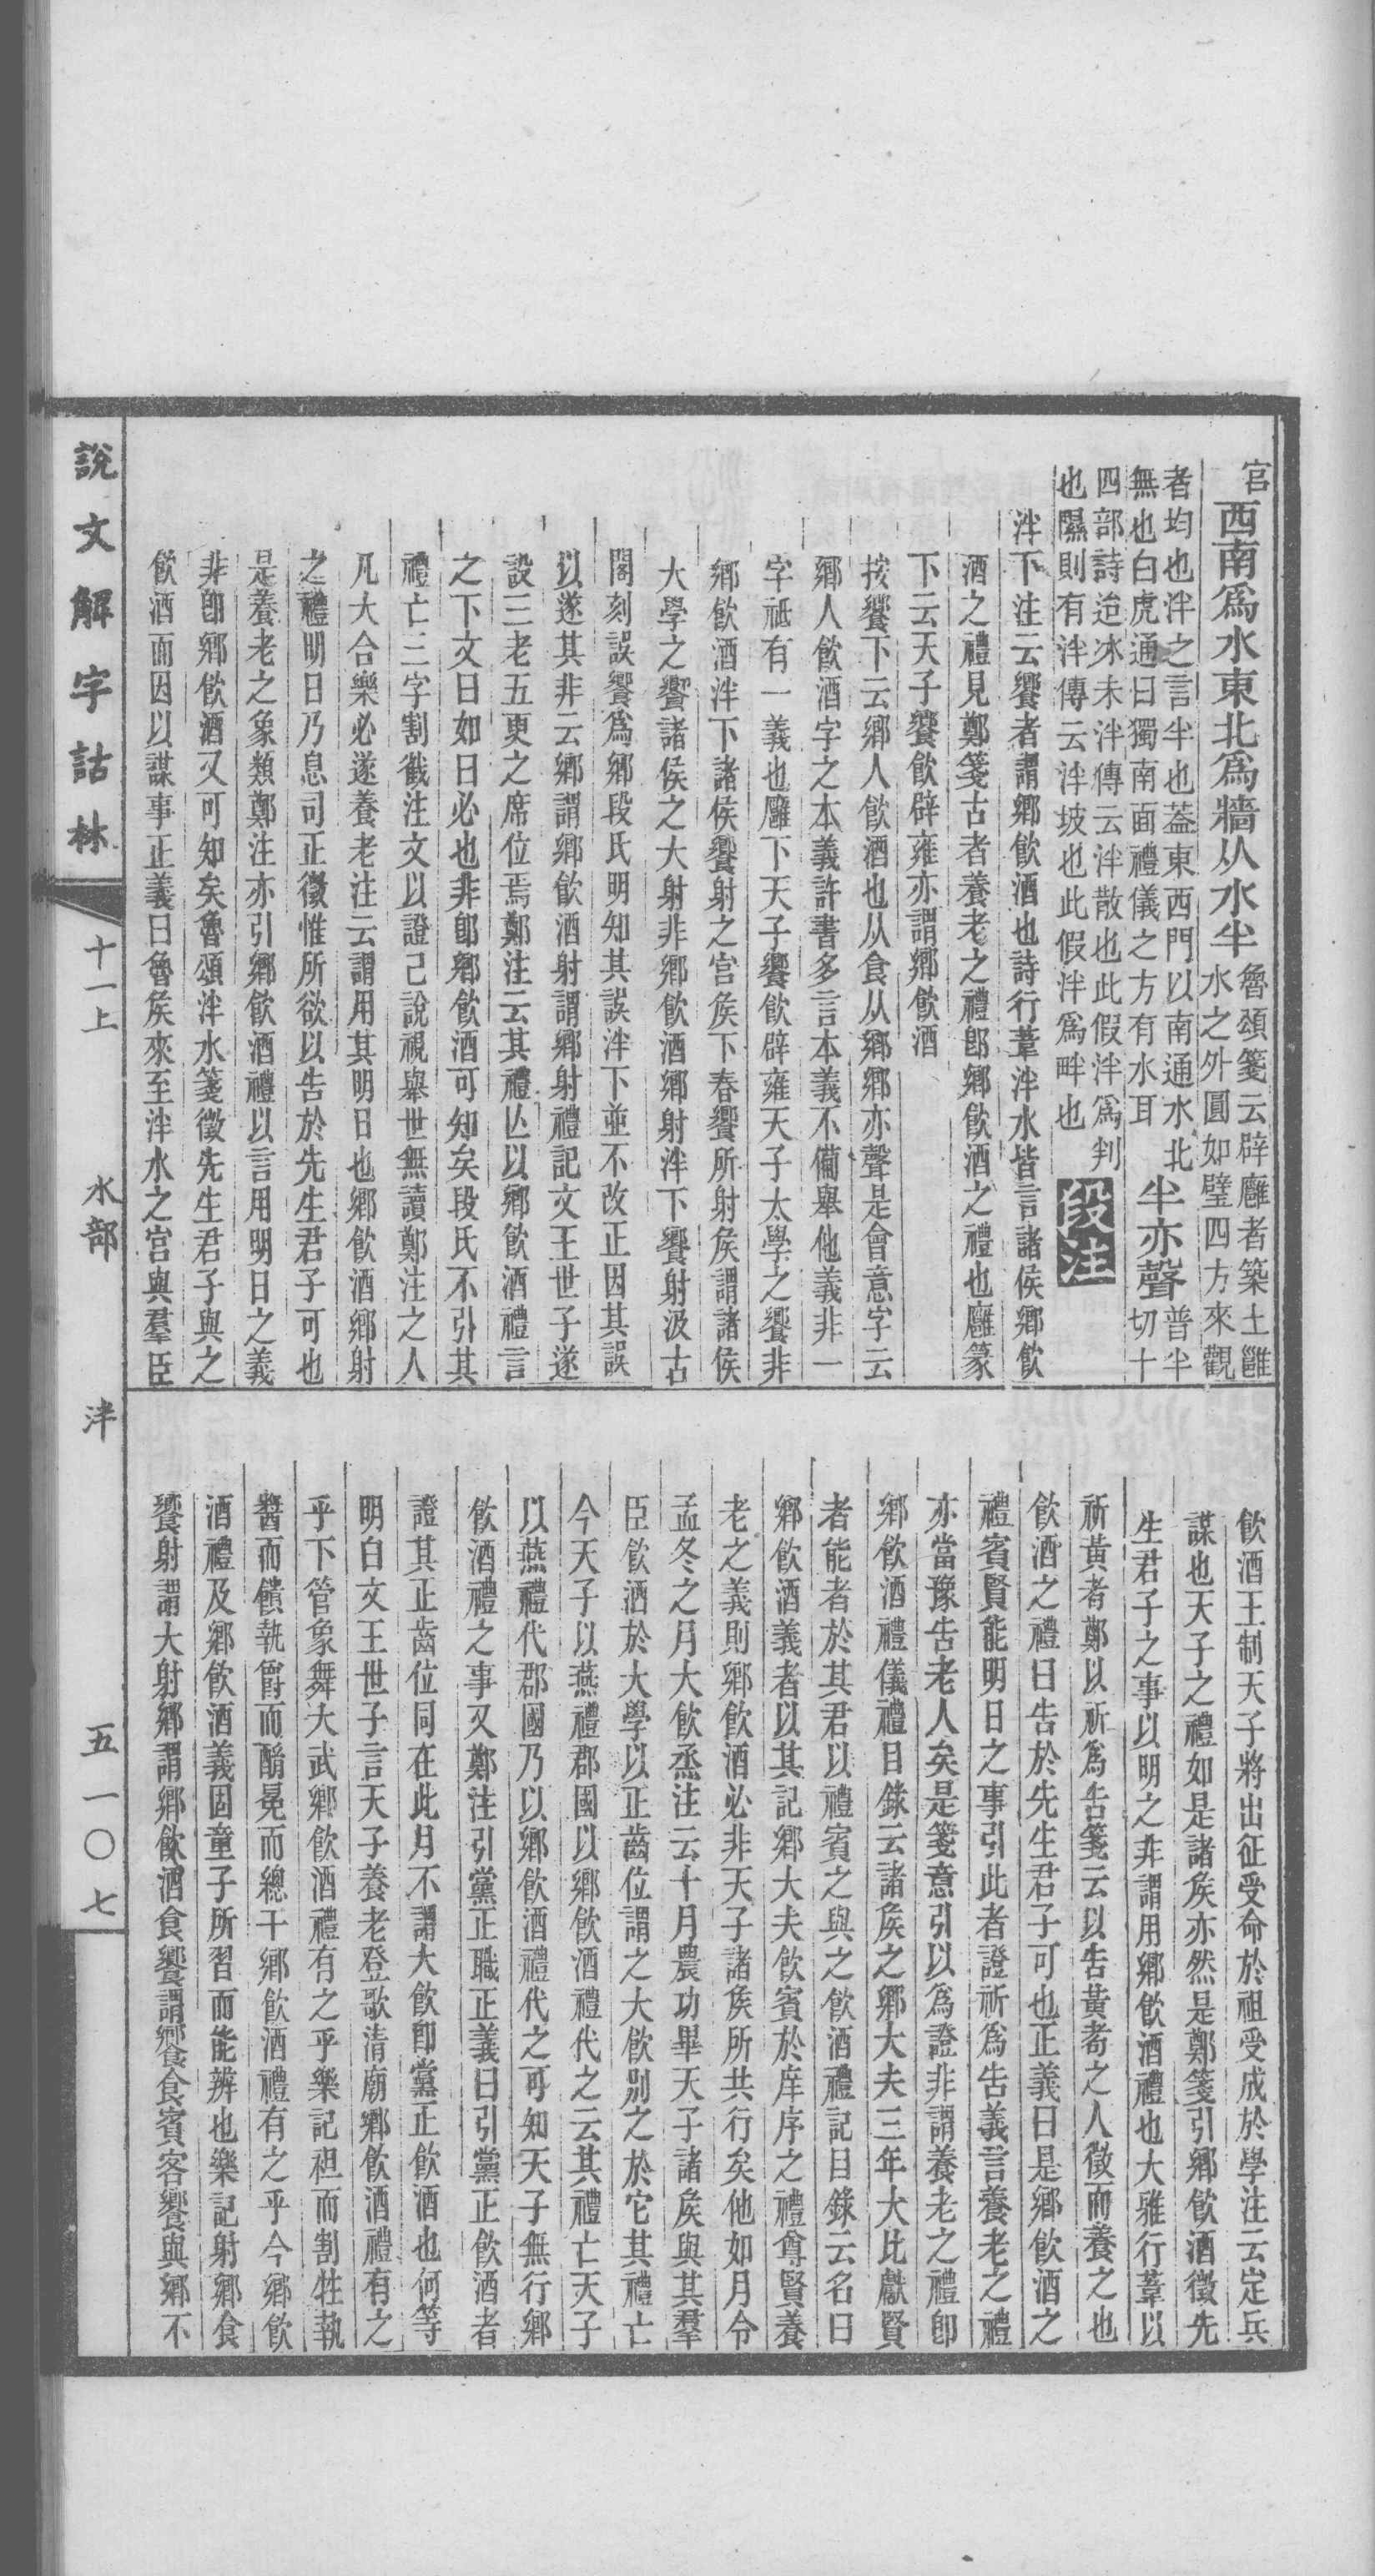 宮
西南爲水東北爲牆从水半
魯頌箋云辟廱者築土雝
水之外圓如璧四方來觀
者均也泮之言半也葢東西門以南通水北
無也白虎通曰獨南面禮儀之方有水耳
半亦聲
普半
切十
四部詩迨冰未泮傳云泮散也此假泮爲判
也隰則有泮傳云泮坡也此假泮爲畔也
段注
泮下注云饗者謂鄉飲酒也詩行葦泮水皆言諸侯鄉飲
酒之禮見鄭箋古者養老之禮卽鄉飲酒之禮也廱篆
下云天子饗飲辟雍亦謂鄉飲酒
按饗下云鄉人飲酒也从食从鄉鄉亦聲是會意字云
鄉人飲酒字之本義許書多言本義不備舉他義非一
字祗有一義也廱下天子饗飲辟雍天子太學之饗非
鄉飲酒泮下諸侯饗射之宮矦下春饗所射矦謂諸侯
大學之饗諸侯之大射非鄉飲酒鄉射泮下饗射汲古
閣刻誤饗爲鄉段氏明知其誤泮下並不改正因其誤
以遂其非云鄉謂鄉飲酒射謂鄉射禮記文王世子遂
設三老五更之席位焉鄭注云其禮亾以鄉飲酒禮言
之下文曰如曰必也非卽鄉飲酒可知矣段氏不引其
禮亡三字割截注文以證己說視舉世無讀鄭注之人
凡大合樂必遂養老注云謂用其明日也鄉飲酒鄉射
之禮明日乃息司正徵惟所欲以告於先生君子可也
是養老之象類鄭注亦引鄉飲酒禮以言用明日之義
非卽鄉飲酒又可知矣魯頌泮水箋徵先生君子與之
飲酒而因以謀事正義曰魯矦來至泮水之宮與羣臣
飲酒王制天子將出征受命於祖受成於學注云定兵
謀也天子之禮如是諸矦亦然是鄭箋引鄉飲酒徵先
生君子之事以明之非謂用鄉飲酒禮也大雅行葦以
祈黃耇鄭以祈爲告箋云以告黃耇之人徵而養之也
飲酒之禮曰告於先生君子可也正義曰是鄉飲酒之
禮賓賢能明日之事引此者證祈爲告義言養老之禮
亦當豫告老人矣是箋意引以爲證非謂養老之禮卽
鄉飲酒禮儀禮目錄云諸矦之鄉大夫三年大比獻賢
者能者於其君以禮賓之與之飲酒禮記目錄云名曰
鄉飲酒義者以其記鄉大夫飲賓於庠序之禮尊賢養
老之義則鄉飲酒必非天子諸矦所共行矣他如月令
孟冬之月大飲烝注云十月農功畢天子諸矦與其羣
臣飲酒於大學以正齒位謂之大飲別之於它其禮亡
今天子以燕禮郡國以鄉飲酒禮代之云其禮亡天子
以燕禮代郡國乃以鄉飲酒禮代之可知天子無行鄉
飲酒禮之事又鄭注引黨正職正義曰引黨正飲酒者
證其正齒位同在此月不謂大飲卽黨正飲酒也何等
明白文王世子言天子養老登歌清廟鄉飲酒禮有之
乎下管象舞大武鄉飲酒禮有之乎樂記袒而割牲執
醬而饋執爵而酳冕而總干鄉飲酒禮有之乎今鄉飲
酒禮及鄉飲酒義固童子所習而能辨也樂記射鄉食
饗射謂大射鄉謂鄉飲酒食饗謂饗食賓客饗與鄉不
說文解字詁林
十一上
水部
泮
五一〇七